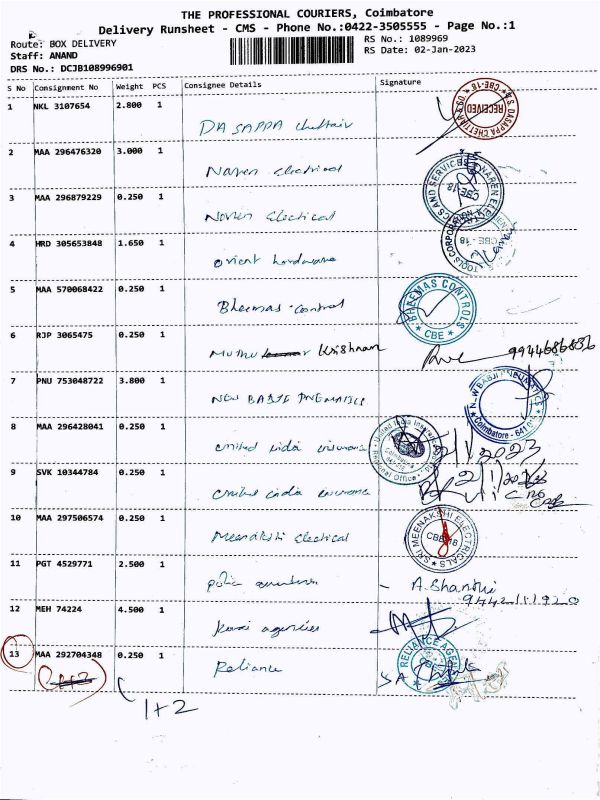 THE PROFESSIONAL COURIERS, Coimbatore
Delivery Runsheet - CMS - Phone No.:0422-3505555 - Page No.:1
Route: BOX DELIVERY
RS No.: 1089969
Staff: ANAND
RS Date: 02-Jan-2023
DRS No.: DCJB108996901
S No Consignment No Weight PCS Consignee Details Signature
1 NKL 3107654 2.800 1
DASAPPA chettair
RECEIVED
CBE-16
2 MAA 296476320 3.000 1
Naren electrical
3 MAA 296879229 0.250 1
Naren electrical
CBE-18
4 HRD 305653848 1.650 1
orient hardware
TOOLS CORPORATION
CBE-18
5 MAA 570068422 0.250 1
Bheemas control
BHEEMAS CONTROLS
CBE
6 RJP 3065475 0.250 1
Muthu Krishnan
9944686836
7 PNU 753048722 3.800 1
NEW BABJI PNEMATICS
NEW BABJI PNEUMATICS
Coimbatore - 641
8 MAA 296428041 0.250 1
united india insurance
2/1/2023
United India Insurance
Regional Office
9 SVK 10344784 0.250 1
united india insurance
10 MAA 297506574 0.250 1
Meenakshi electrical
SRI MEENAKSHI ELECTRICALS
CBE-18
11 PGT 4529771 2.500 1
- A. Shanthi
9442111920
12 MEH 74224 4.500 1
agencies
13 MAA 292704348 0.250 1
Reliance
RELIANCE AGEN
SA
1+2